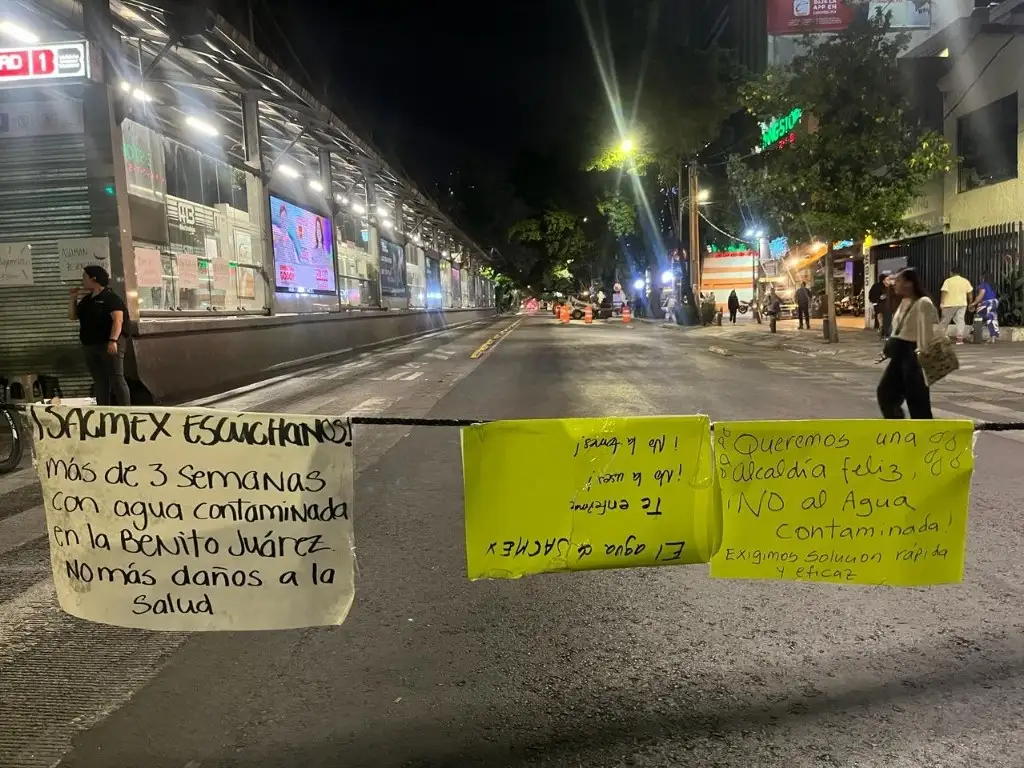 1
¡SACMEX ESCÚCHANOS!
más de 3 semanas
con agua contaminada
en la Benito Juárez.
No más daños a la
Salud
El agua de SACMEX
Te enferma
¡No la uses!
¡No la tomes!
Queremos una
alcaldía feliz,
¡NO al Agua
contaminada!
Exigimos solución rápida
y eficaz
APP EN